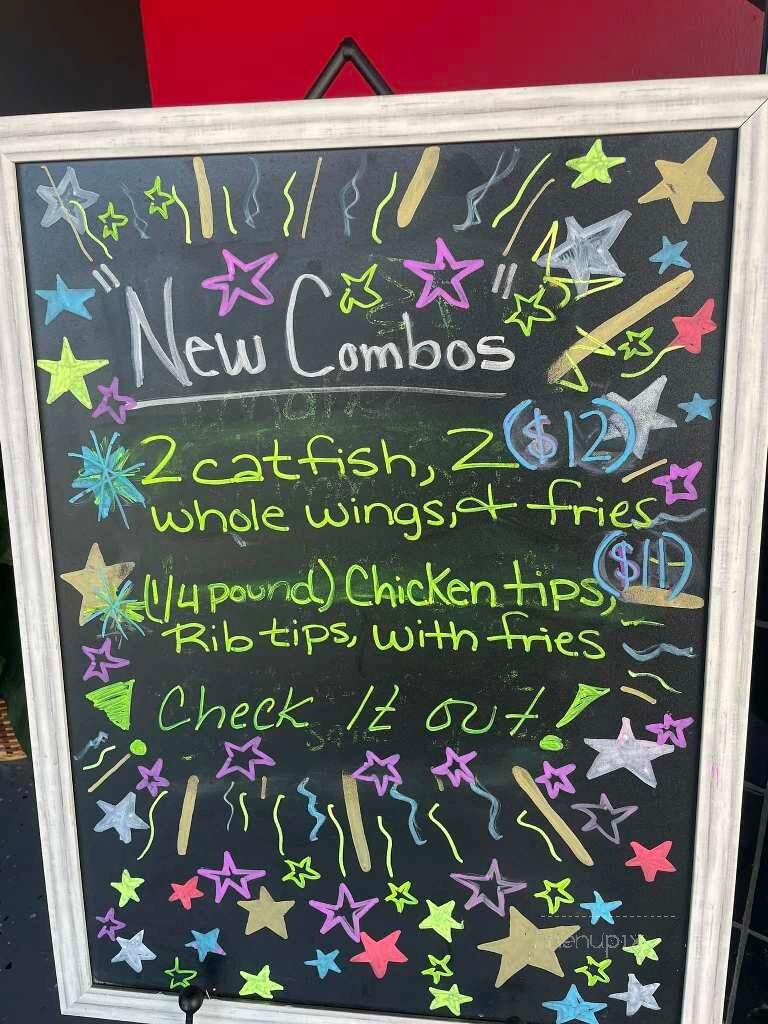 "New Combos"
2 catfish, 2 ($12)
whole wings, & fries
($11)
(1/4 pound) Chicken tips,
Rib tips, with fries
! Check It out!
menupix